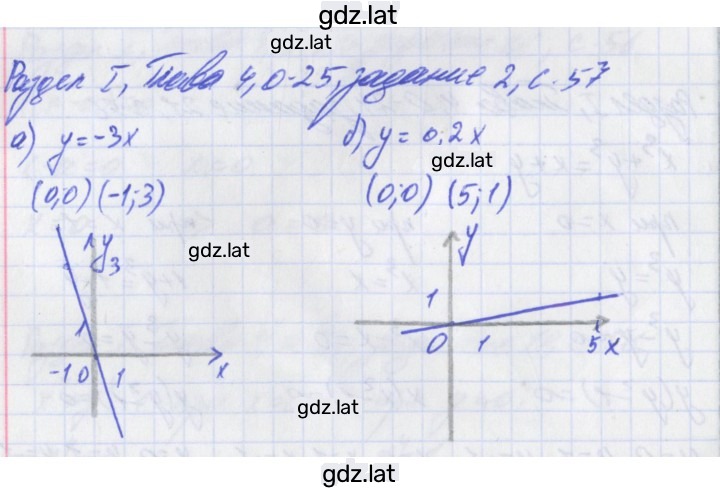 gdz.lat
gdz.lat
Раздел I, Глава 4, О-25, задание 2, с. 57
а) y=-3x
б) y= 0,2x
gdz.lat
(0;0) (-1;3)
(0;0) (5;1)
y
3
gdz.lat
1
-1 0 1 x
y
1
0 1 5 x
gdz.lat
gdz.lat